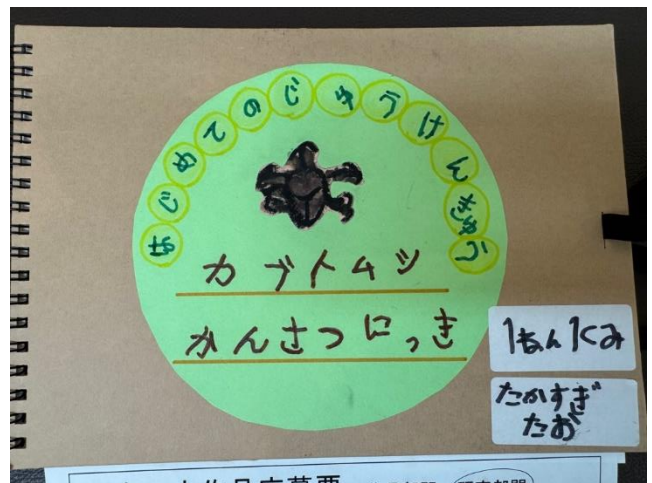 はじめてのじゆうけんきゅう
カブトムシ
かんさつにっき
1ねん1くみ
たかすぎ
たお